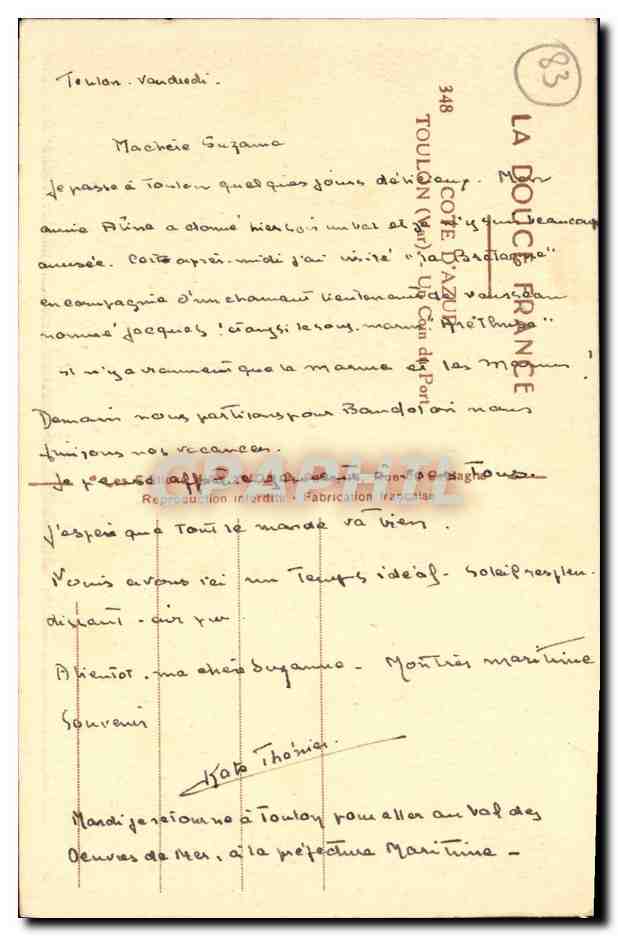 83
LA DOUCE FRANCE
348 COTE D'AZUR
TOULON (Var) - Un Coin du Port
Toulon - Vendredi -
Ma chère Suzanne
Je passe à Toulon quelques jours délicieux. Mon
amie Aline a donné hier soir un bal et je m'y suis beaucoup
amusée. Cette après-midi j'ai visité "la Bretagne"
en compagnie d'un charmant lieutenant de vaisseau
nommé Jacques ! et aussi le sous-marin "Aréthuse"
il n'y a vraiment que la marine et les Marins !
Demain nous partirons pour Bandol où nous
finirons nos vacances.
Je pense affectueusement à vous tous.
GRAPHIL
Reproduction interdite - Fabrication française
J'espère que tout le monde va bien.
Nous avons ici un temps idéal - soleil resplen-
dissant - air pur
A bientôt, ma chère Suzanne - Mon très maritime
Souvenir
Mardi je retourne à Toulon pour aller au bal des
Oeuvres de Mer, à la préfecture Maritime -